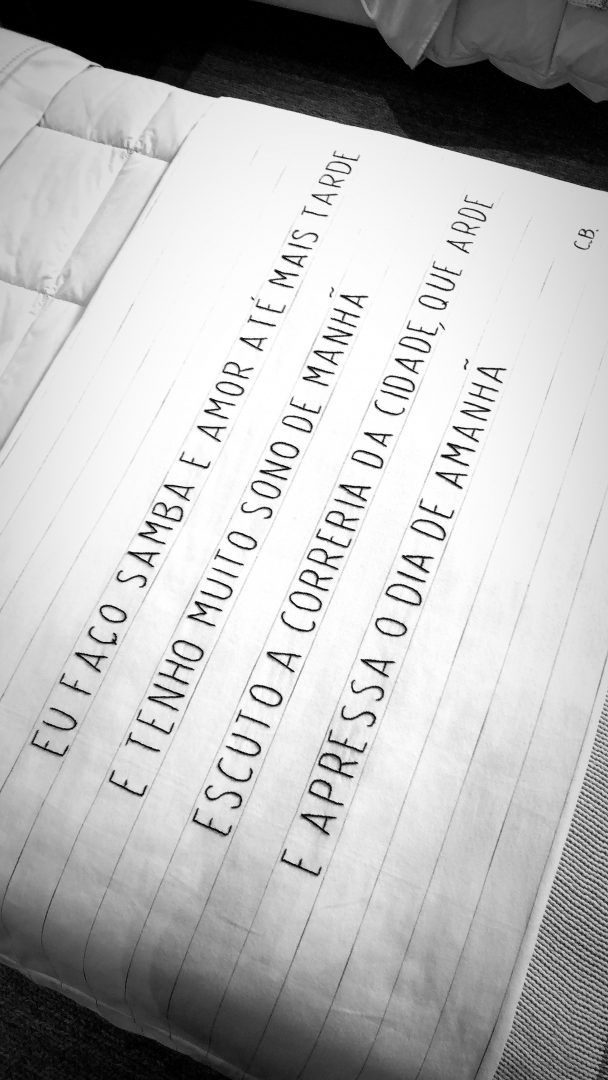 EU FAÇO SAMBA E AMOR ATÉ MAIS TARDE
E TENHO MUITO SONO DE MANHÃ
ESCUTO A CORRERIA DA CIDADE, QUE ARDE
E APRESSA O DIA DE AMANHÃ
C.B.